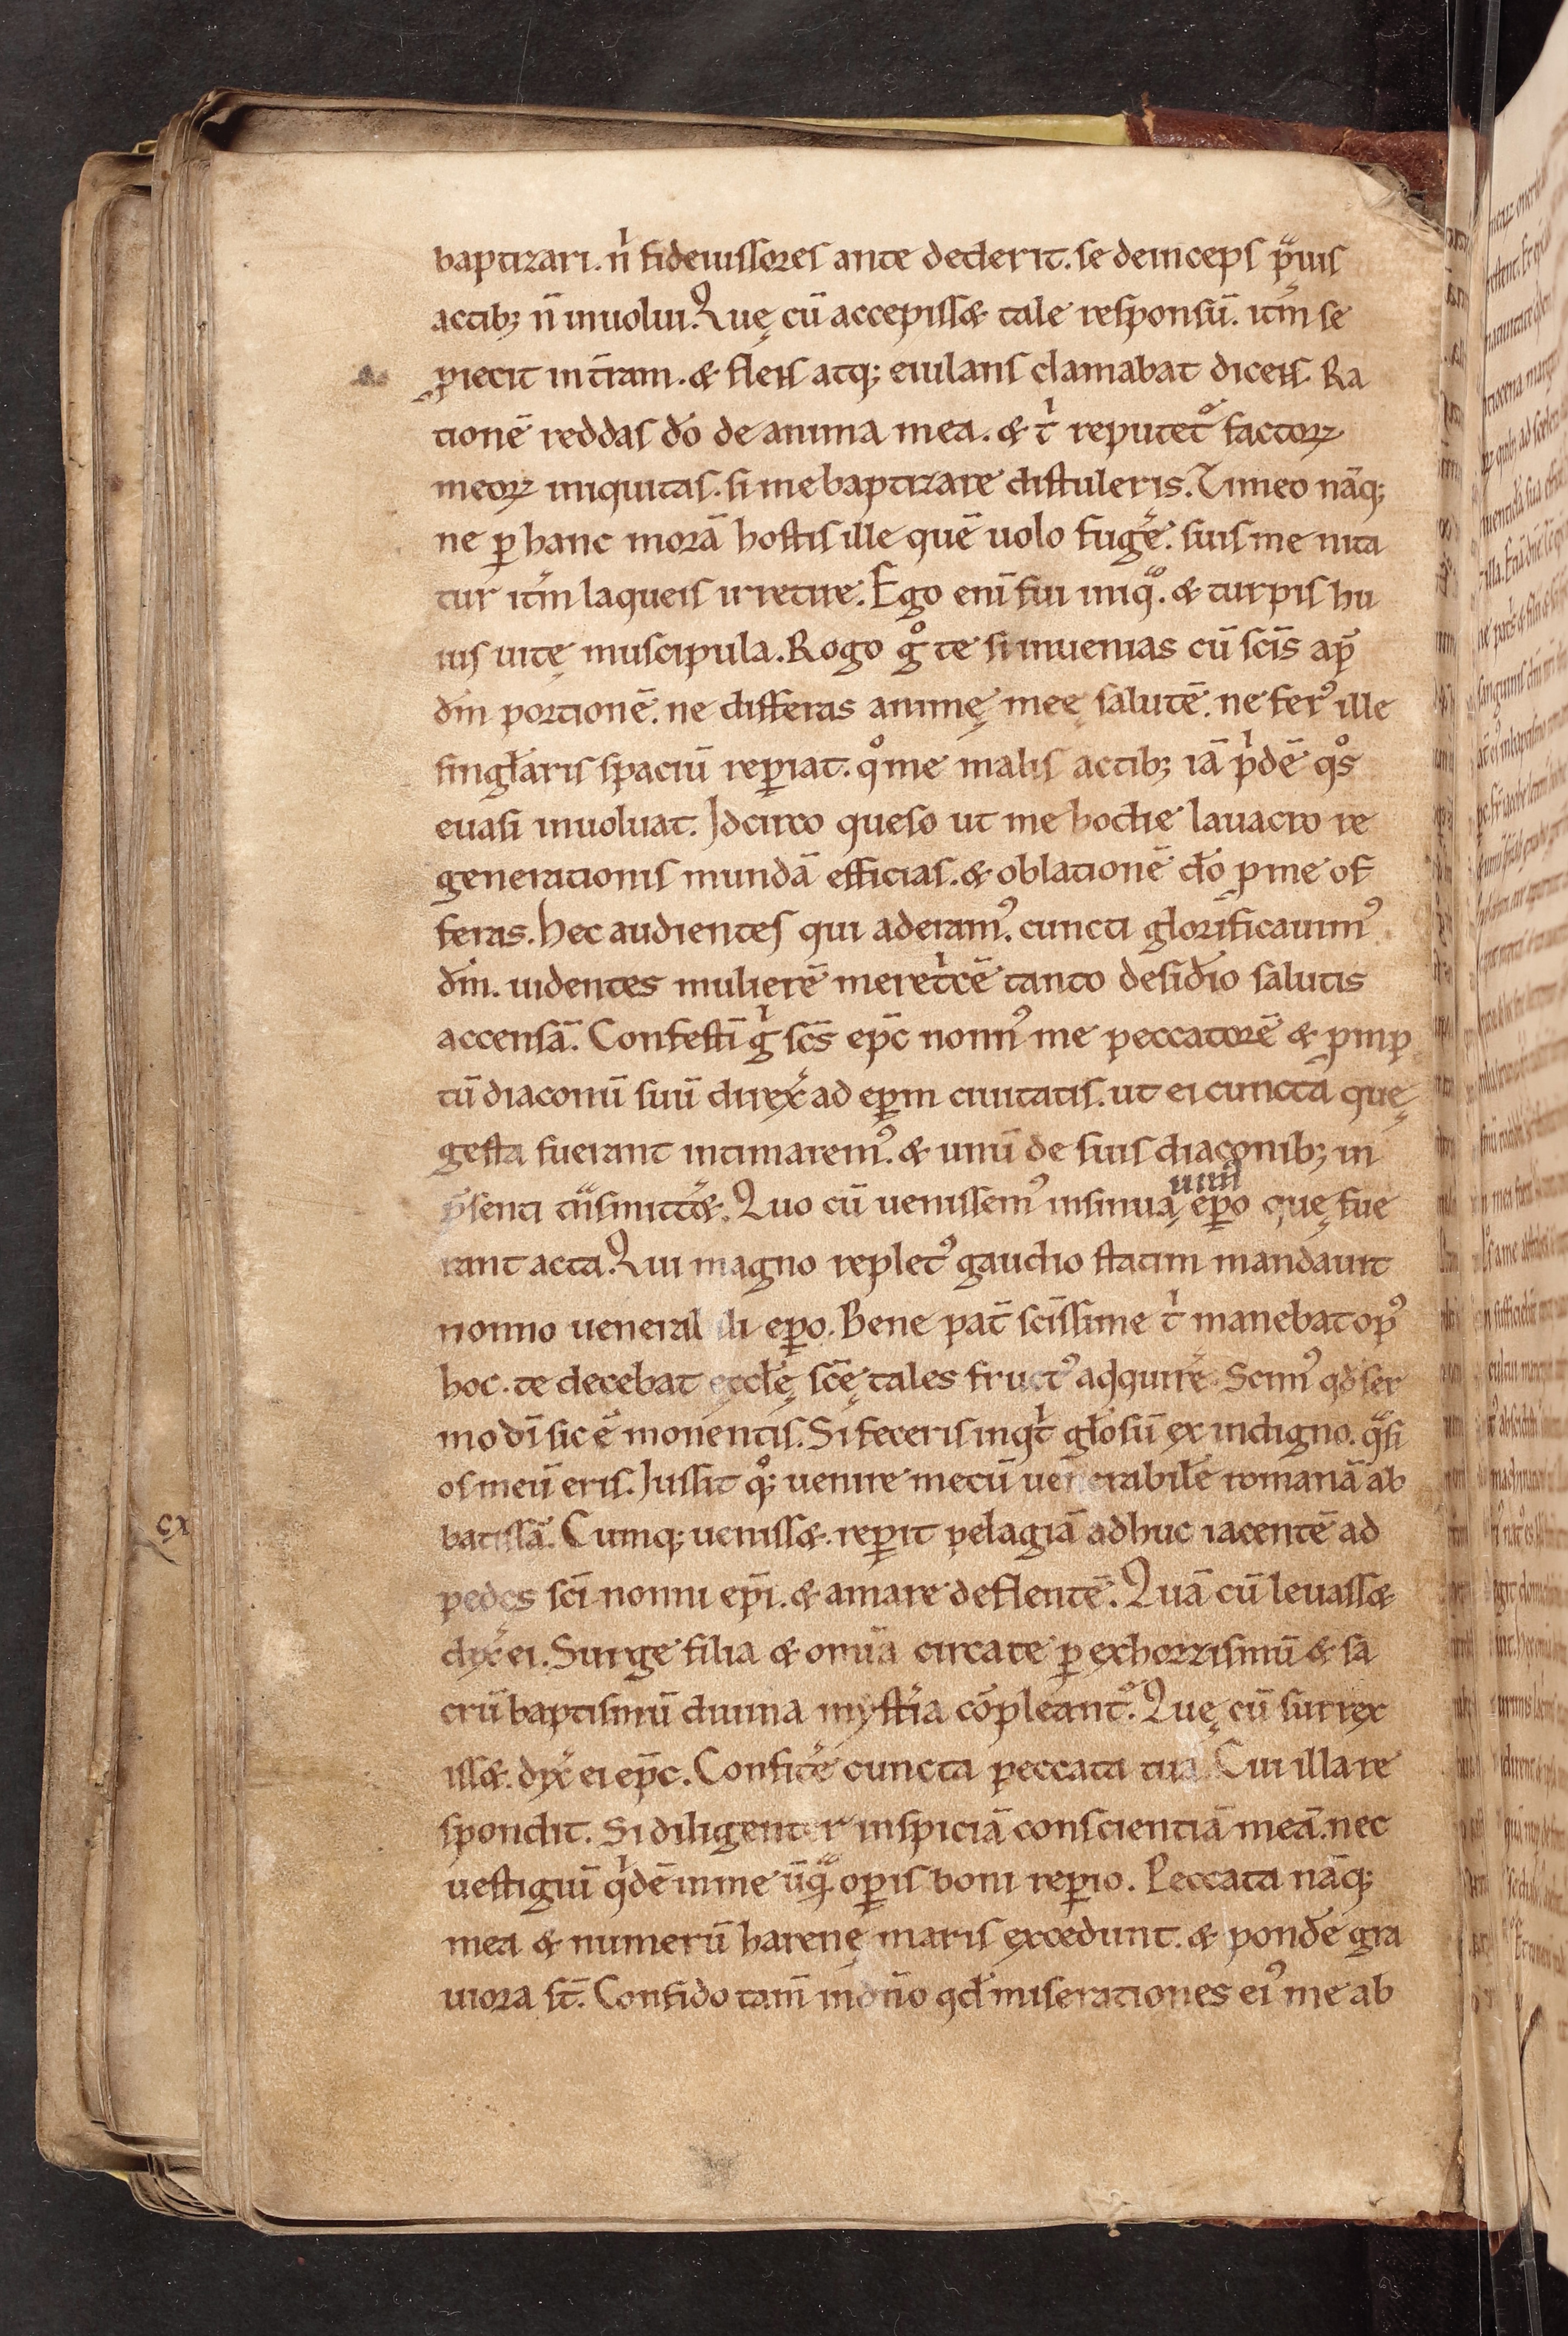 baptizari. nͥ fideiussores ante dederit. se deinceps pᷓuis
actib; n̄ inuolui. Quę cū accepiss& tale responsū. itm̄ se
ꝓiecit in t̄ram. & flens atq; eiulans clamabat dicens. Ra
tionē reddas dō de anima mea. & tͥ reputet᷑ factoꝝ
meoꝝ iniquitas. si me baptizare distuleris. Timeo nāq;
ne ꝑ hanc morā hostis ille quē uolo fuge͛. suis me nita
tur itm̄ laqueis irretire. Ego enī fui iniqͦ. & turpis hu
ius uitę muscipula. Rogo gͦ te si inuenias cū sc̄is ap̄
dm̄ portionē. ne differas animę meę salutē. ne ferꝰ ille
singłaris spaciū reꝑiat. qͦ me malis actib; iā pͥdē qͦs
euasi inuoluat. Idcirco queso ut me hodie lauacro re
generationis mundā efficias. & oblationē dō ꝓ me of
feras. Hec audientes qui aderamꝰ. cuncti glorificauimꝰ
dm̄. uidentes mulierē meretͥcē tanto desid̄io salutis
accensā. Confestī gͥ sc̄s ep̄c nonnꝰ me peccatorē & pmp
tū diaconū suū direx͛ ad ep̄m ciuitatis. ut ei cuncta quę
gesta fuerant intimaremꝰ. & unū de suis diaconib; in
p̄senti tn̄smitt&. Quo cū uenissemꝰ insinua
uim̄
ep̄o quę fue
rant acta. Qui magno repletꝰ gaudio statim mandauit
nonno uenerabili ep̄o. Bene pat̄ sc̄issime tͥ manebat opꝰ
hoc. te decebat eccłę sc̄ę tales fructꝰ adquire͛. Scimꝰ qd̄ ser
mo dī sic ē monentis. Si feceris inqͥt głosū ex indigno. qᷓsi
os meū eris. Iussit qͦ; uenire mecū uenerabilē romanā ab
batissā. Cumq; ueniss&. reꝑit pelagiā adhuc iacentē ad
pedes sc̄i nonni ep̄i. & amare deflentē. Quā cū leuass&
dix͛ ei. Surge filia & omīa circa te ꝑ exhorzismū & sa
crū baptismū diuina myst͛ia cōpleant᷑. Quę cū surrex
iss&. dix͛ ei ep̄c. Confite͛ cuncta peccata tua. Cui illa re
spondit. Si diligenter inspiciā conscientiā meā. nec
uestigiū qͥdē in me ūqᷓ. oꝑis boni reꝑio. Peccata nāq;
mea & numerū harenę maris excedunt. & pond̄e gra
uiora st̄. Confido tam̄ in dn̄o qd̄ miserationes eiꝰ me ab
cx